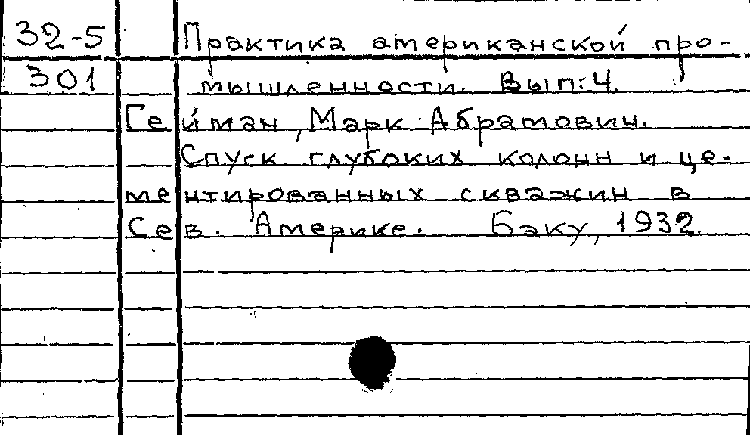 32-5 Практика американской про-
301 мышленности. Вып. 4.
Гейман, Марк Абрамович.
Спуск глубоких колонн и це-
ментированных скважин в
Сев. Америке. Баку, 1932